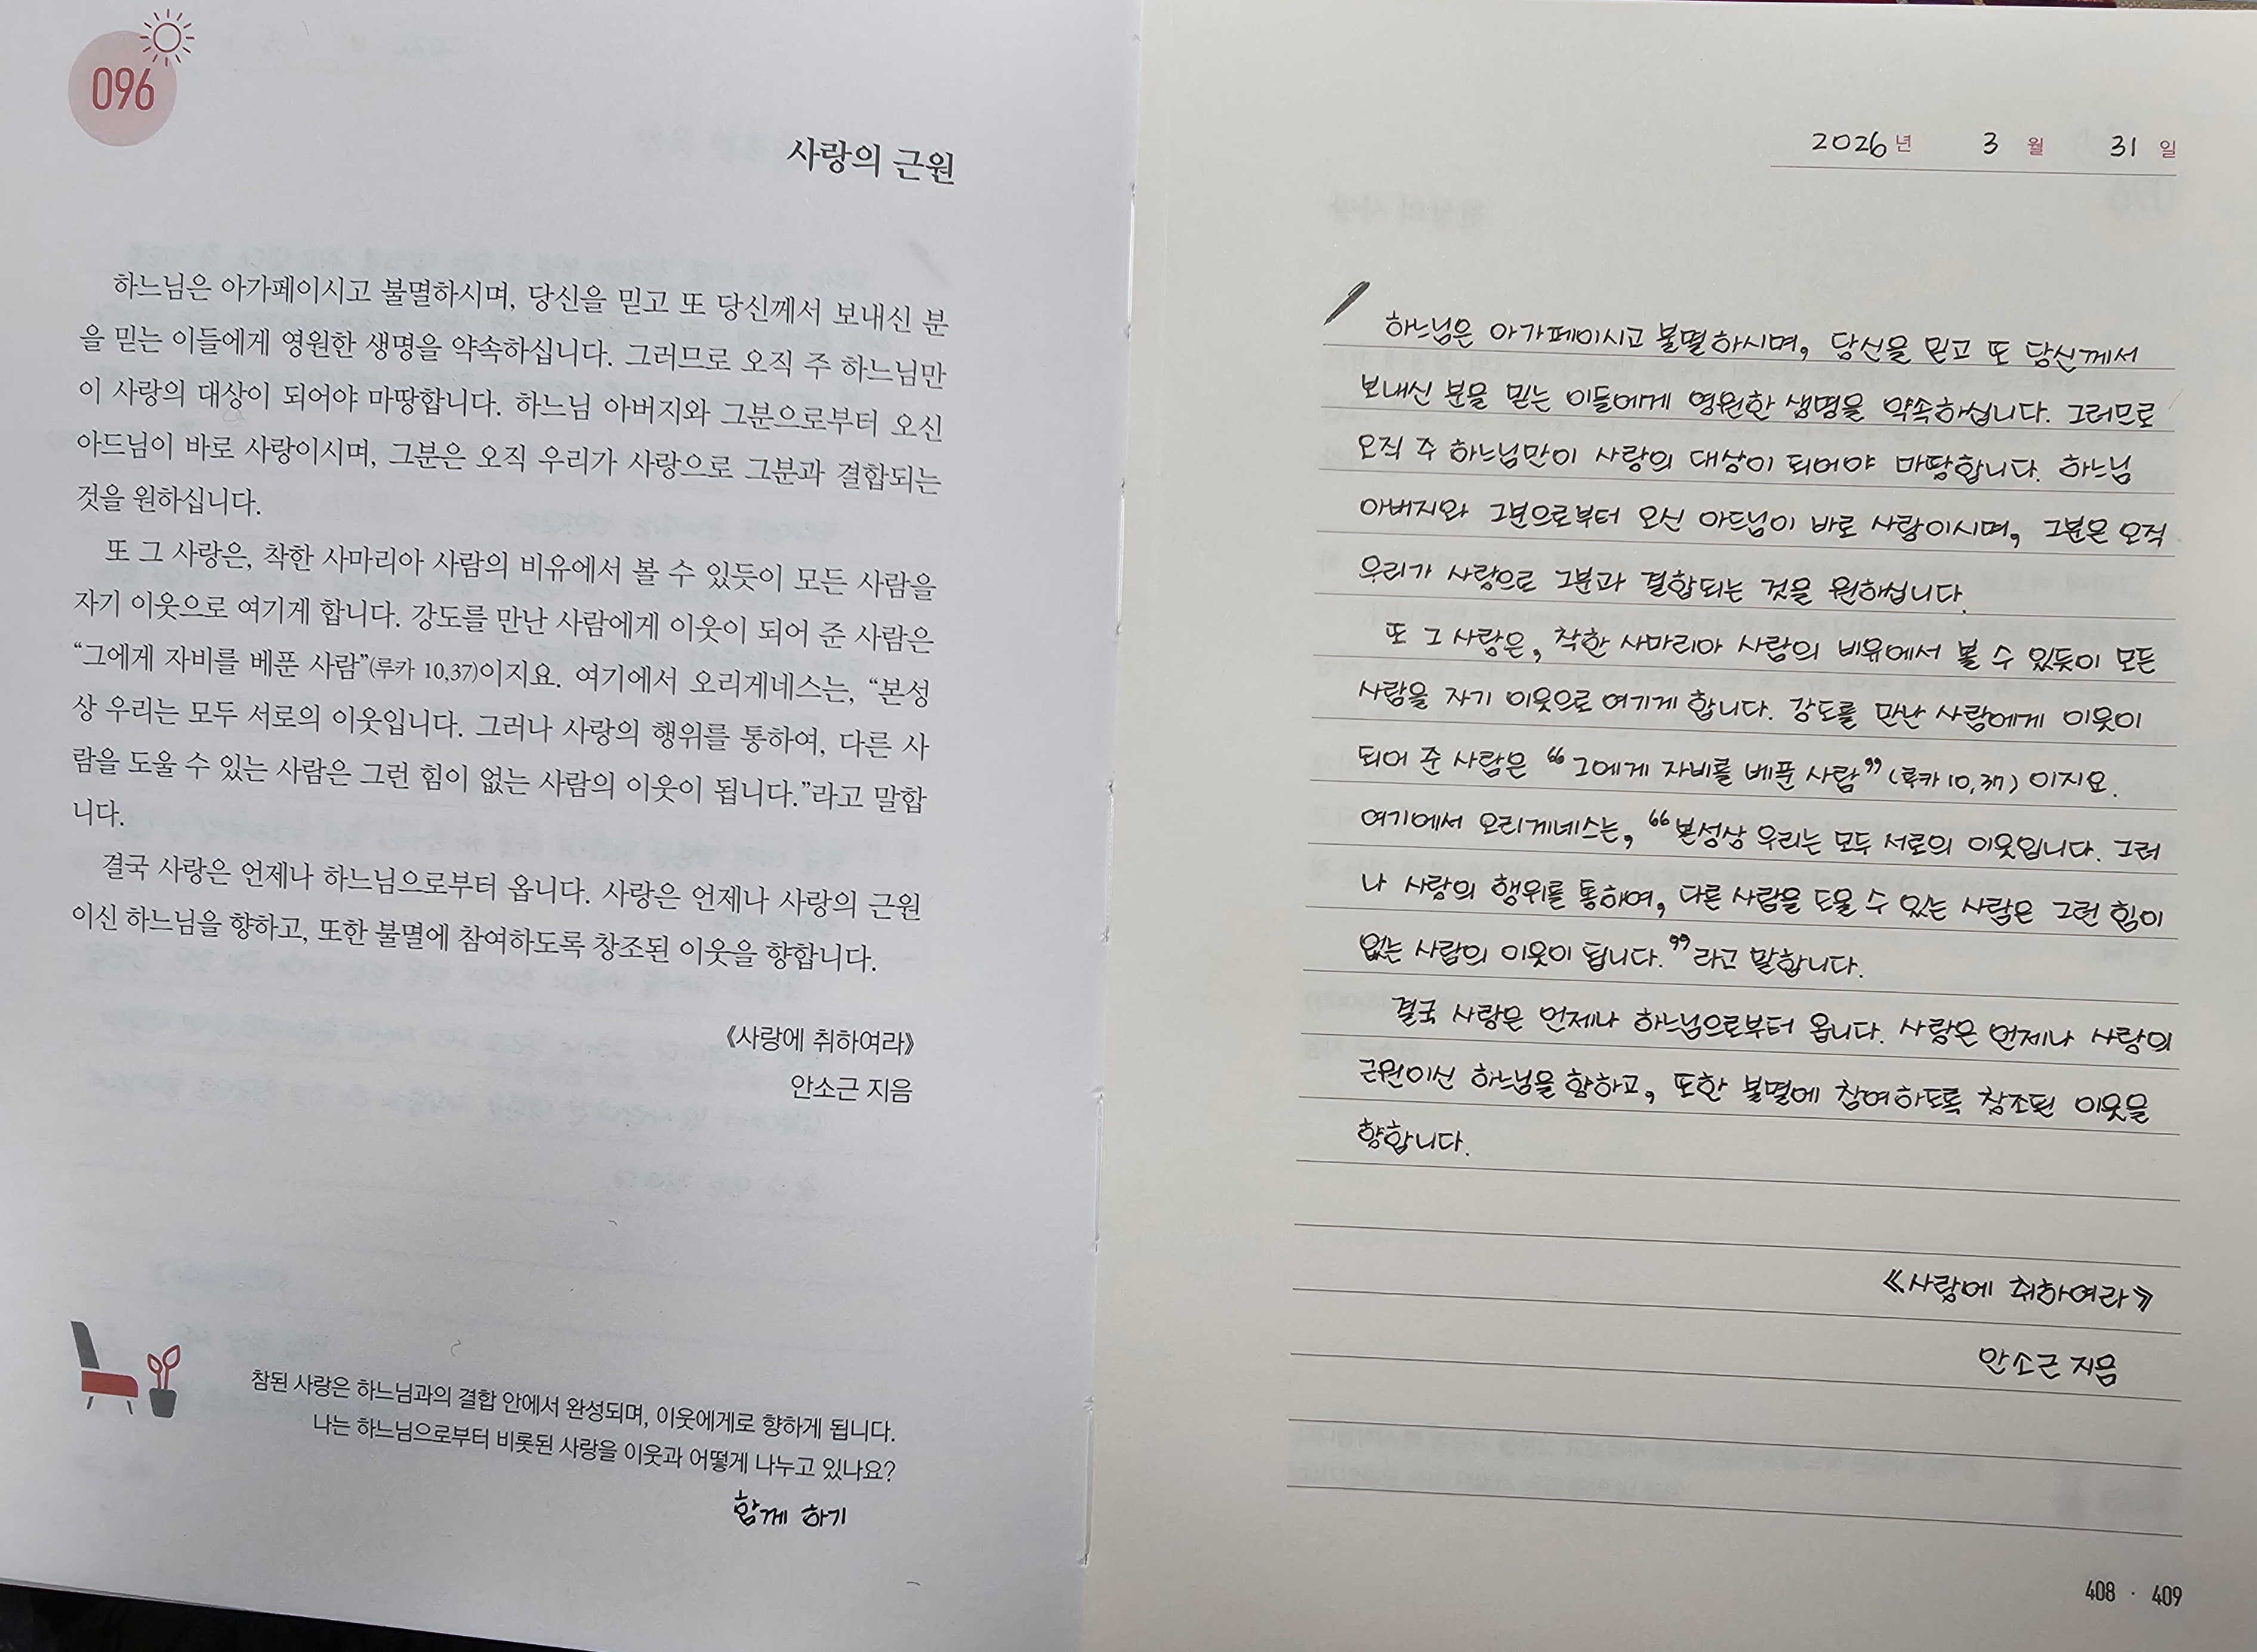 096
사랑의 근원
하느님은 아가페이시고 불멸하시며, 당신을 믿고 또 당신께서 보내신 분
을 믿는 이들에게 영원한 생명을 약속하십니다. 그러므로 오직 주 하느님만
이 사랑의 대상이 되어야 마땅합니다. 하느님 아버지와 그분으로부터 오신
아드님이 바로 사랑이시며, 그분은 오직 우리가 사랑으로 그분과 결합되는
것을 원하십니다.
또 그 사랑은, 착한 사마리아 사람의 비유에서 볼 수 있듯이 모든 사람을
자기 이웃으로 여기게 합니다. 강도를 만난 사람에게 이웃이 되어 준 사람은
“그에게 자비를 베푼 사람”(루카 10,37)이지요. 여기에서 오리게네스는, “본성
상 우리는 모두 서로의 이웃입니다. 그러나 사랑의 행위를 통하여, 다른 사
람을 도울 수 있는 사람은 그런 힘이 없는 사람의 이웃이 됩니다.”라고 말합
니다.
결국 사랑은 언제나 하느님으로부터 옵니다. 사랑은 언제나 사랑의 근원
이신 하느님을 향하고, 또한 불멸에 참여하도록 창조된 이웃을 향합니다.
《사랑에 취하여라》
안소근 지음
참된 사랑은 하느님과의 결합 안에서 완성되며, 이웃에게로 향하게 됩니다.
나는 하느님으로부터 비롯된 사랑을 이웃과 어떻게 나누고 있나요?
함께 하기
2026년 3월 31일
하느님은 아가페이시고 불멸하시며, 당신을 믿고 또 당신께서
보내신 분을 믿는 이들에게 영원한 생명을 약속하십니다. 그러므로
오직 주 하느님만이 사랑의 대상이 되어야 마땅합니다. 하느님
아버지와 그분으로부터 오신 아드님이 바로 사랑이시며, 그분은 오직
우리가 사랑으로 그분과 결합되는 것을 원하십니다.
또 그 사랑은, 착한 사마리아 사람의 비유에서 볼 수 있듯이 모든
사람을 자기 이웃으로 여기게 합니다. 강도를 만난 사람에게 이웃이
되어 준 사람은 “그에게 자비를 베푼 사람”(루카 10,37)이지요.
여기에서 오리게네스는, “본성상 우리는 모두 서로의 이웃입니다. 그러
나 사랑의 행위를 통하여, 다른 사람을 도울 수 있는 사람은 그런 힘이
없는 사람의 이웃이 됩니다.”라고 말합니다.
결국 사랑은 언제나 하느님으로부터 옵니다. 사랑은 언제나 사랑의
근원이신 하느님을 향하고, 또한 불멸에 참여하도록 창조된 이웃을
향합니다.
《사랑에 취하여라》
안소근 지음
408 · 409